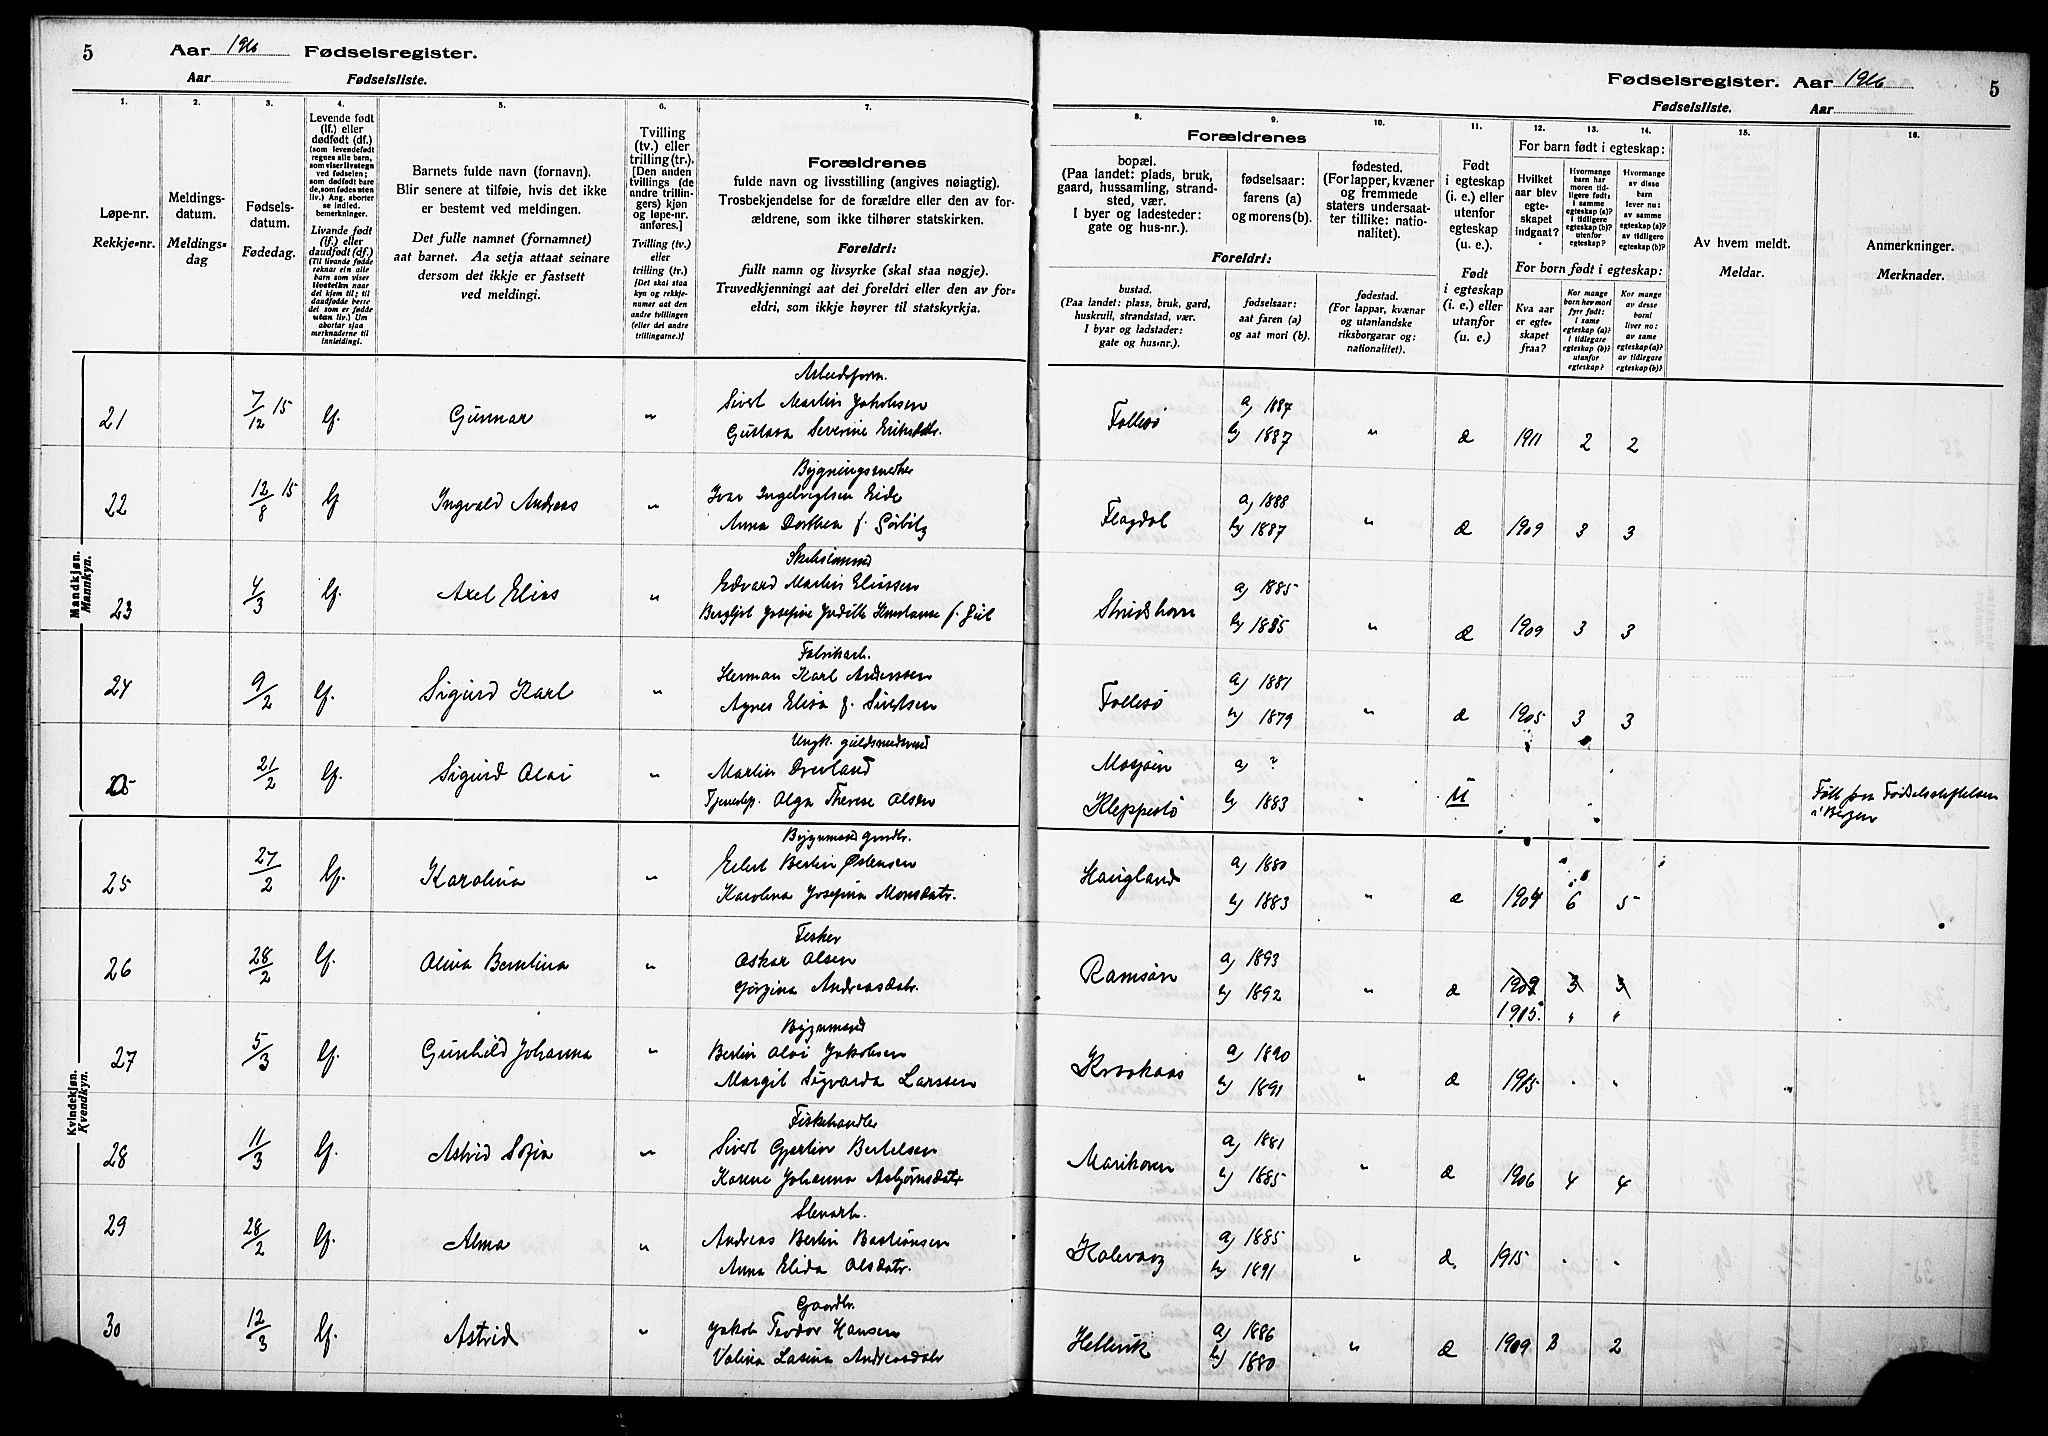 5 Aar 1916 Fødselsregister.
Aar Fødselsliste.
Fødselsregister. Aar 1916 5
Fødselsliste. Aar
1. 2. 3. 4. 5. 6. 7.
Løpe-nr.
Rekkje-nr.
Meldings-
datum.
Meldings-
dag
Fødsels-
datum.
Fødedag.
Levende født
(lf.) eller
dødfødt (df.)
(som levendefødt
regnes alle barn,
som viser livstegn
ved fødselen;
som dødfødt bare
de, som fødes uten
liv.) Ang. aborter
se indled.
bemerkninger.
Livande født
(lf.) eller
daudfødt (df.)
(Til livande fødde
reknar ein alle
barn som viser
livsteikn naar
det kjem til; til
daudfødde berre
dei som er fødde
utan liv.) Um
abortar sjaa
merknaderne til
innleidingi.
Barnets fulde navn (fornavn).
Blir senere at tilføie, hvis det ikke
er bestemt ved meldingen.
Det fulle namnet (fornamnet)
aat barnet. Aa setja attaat seinare
dersom det ikkje er fastsett
ved meldingi.
Tvilling
(tv.) eller
trilling (tr.).
[Den anden
tvillings (de
andre trillin-
gers) kjøn
og løpe-nr.
anføres.]
Tvilling (tv.)
eller
trilling (tr.)
[Det skal staa
kyn og rekkje-
numer aat den
andre tvillingen
(eller dei andre
trillingarne.)]
Forældrenes
fulde navn og livsstilling (angives nøiagtig).
Trosbekjendelse for de forældre eller den av for-
ældrene, som ikke tilhører statskirken.
Foreldri:
fullt namn og livsyrke (skal staa nøgje).
Truvedkjenningi aat dei foreldri eller den av for-
eldri, som ikkje høyrer til statskyrkja.
8. 9. 10. 11. 12. 13. 14. 15. 16.
Forældrenes
bopæl.
(Paa landet: plads, bruk,
gaard, hussamling, strand-
sted, vær.
I byer og ladesteder:
gate og hus-nr.).
fødselsaar:
farens (a)
og morens (b).
fødested.
(For lapper, kvæner
og fremmede
staters undersaat-
ter tillike: natio-
nalitet).
Foreldri:
bustad.
(Paa landet: plass, bruk, gard,
huskrull, strandstad, vær.
I byar og ladstader:
gate og hus-nr.).
fødselsaar:
aat faren (a)
og aat mori (b).
fødestad.
(For lappar, kvænar
og utanlandske
riksborgarar og:
nationalitet).
Født
i egteskap
(i. e.) eller
utenfor
egteskap
(u. e.).
Født
i egteskap
(i. e.) eller
utanfor
(u. e.)
For barn født i egteskap:
Hvilket
aar blev
egte-
skapet
indgaat?
Hvormange
barn har
moren tid-
ligere født:
i samme
egteskap (a)?
i tidligere
egteskap (b)?
utenfor
egteskap?
Hvormange
av disse
barn
lever nu:
av samme
egteskap (a)?
av tidligere
egteskap (b)?
For born født i egteskap:
Kva aar
er egte-
skapet
fraa?
Kor mange
born hev mori
fyrr født:
i same
egteskap (a)?
i tidlegare
egteskap (b)?
utanfor
egteskap?
Kor mange
av desse
borni
liver no:
av same
egteskap (a)?
av tidlegare
egteskap (b)?
Av hvem meldt.
Meldar.
Anmerkninger.
Merknader.
Mandkjøn.
Mannkyn.
Arbeidsform.
21 7/12 15 lf. Gunnar " Sivert Martin Jakobsen Follesø a) 1887
Gustava Severine Eriksdtr. b) 1887 " æ 1911 2 2
22 12/8 15 lf Ingvald Andreas " Flagdal a) 1888
Anna Dorthea f. b) 1887 " æ 1909 3 3
23 4/3 lf. Axel Elias " Edvard Martin Eliassen Strudshavn a) 1885
b) 1885 " æ 1909 3 3
Fabrikarb.
24 9/2 lf. Sigurd Karl " Herman Karl Anderssen Follesø a) 1881
Agnes Elisa f. Sivertsen b) 1879 " æ 1905 3 3
Ungk. guldsmedsvend
25 21/2 lf. Sigurd Olai " Martin Drevland Mosjøen a) ?
Tjenestep. Olga Therese Olsen Kleppestø b) 1883 " U Født paa Fødselsstiftelsen
i Bergen
Kvindekjøn.
Kvendkyn.
25 27/2 lf. Karolina " Eilert Bertin Østensen Haugland a) 1880
Karolina Josefina Monsdatr. b) 1883 " æ 1904 6 5
Fisker
26 28/2 lf. Olina Berntina " Oskar Olsen Ramsøen a) 1893
Jørgina Andreasdatr. b) 1892 " æ 1909 3 3
1915. " "
Byggnmand
27 5/3 lf. Gunhild Johanna " Bertin Olai Jakobsen Krookaas a) 1890
Margit Sigvarda Larssen b) 1891 " æ 1915 " "
Fiskehandler
28 11/3 lf. Astrid Sofia " Sivert Gjertin Bertelsen Marihaven a) 1881
Karene Johanna Asbjørnsdatr b) 1885 " æ 1906 4 4
Stenarb.
29 28/2 lf. Alma " Andreas Bertin Bastiansen Halevaag a) 1885
Anna Elida Olsdatr. b) 1891 " æ. 1915 " "
Gaardbr.
30 12/3 lf. Astrid " Jakob Teodor Hansen Hellevik a) 1886
Valina Lasina Andreasdatr b) 1880 " æ 1909 3 2